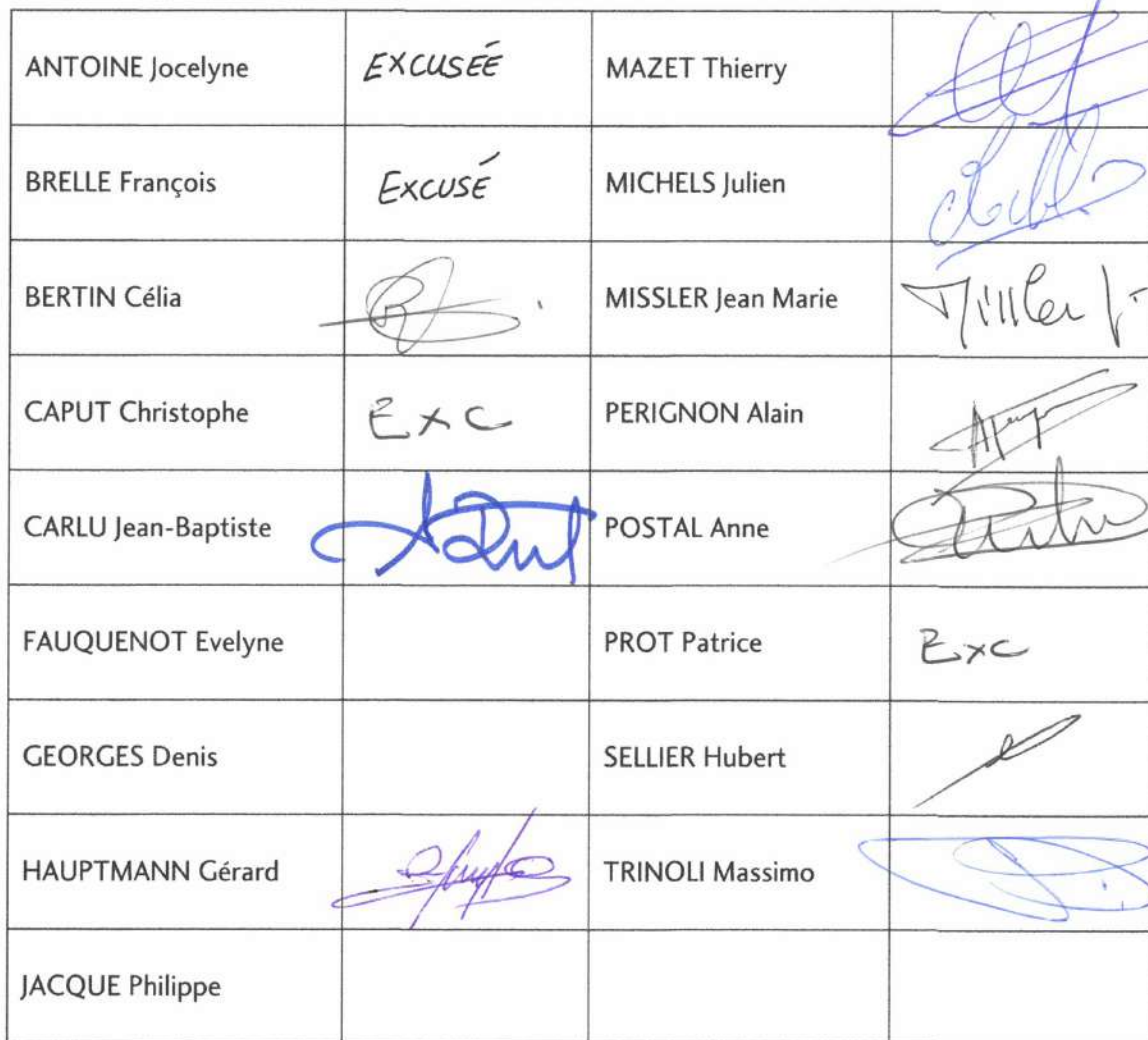 ANTOINE Jocelyne EXCUSÉE MAZET Thierry
BRELLE François EXCUSÉ MICHELS Julien
BERTIN Célia MISSLER Jean Marie Missler J-
CAPUT Christophe Exc PERIGNON Alain
CARLU Jean-Baptiste POSTAL Anne
FAUQUENOT Evelyne PROT Patrice Exc
GEORGES Denis SELLIER Hubert
HAUPTMANN Gérard TRINOLI Massimo
JACQUE Philippe